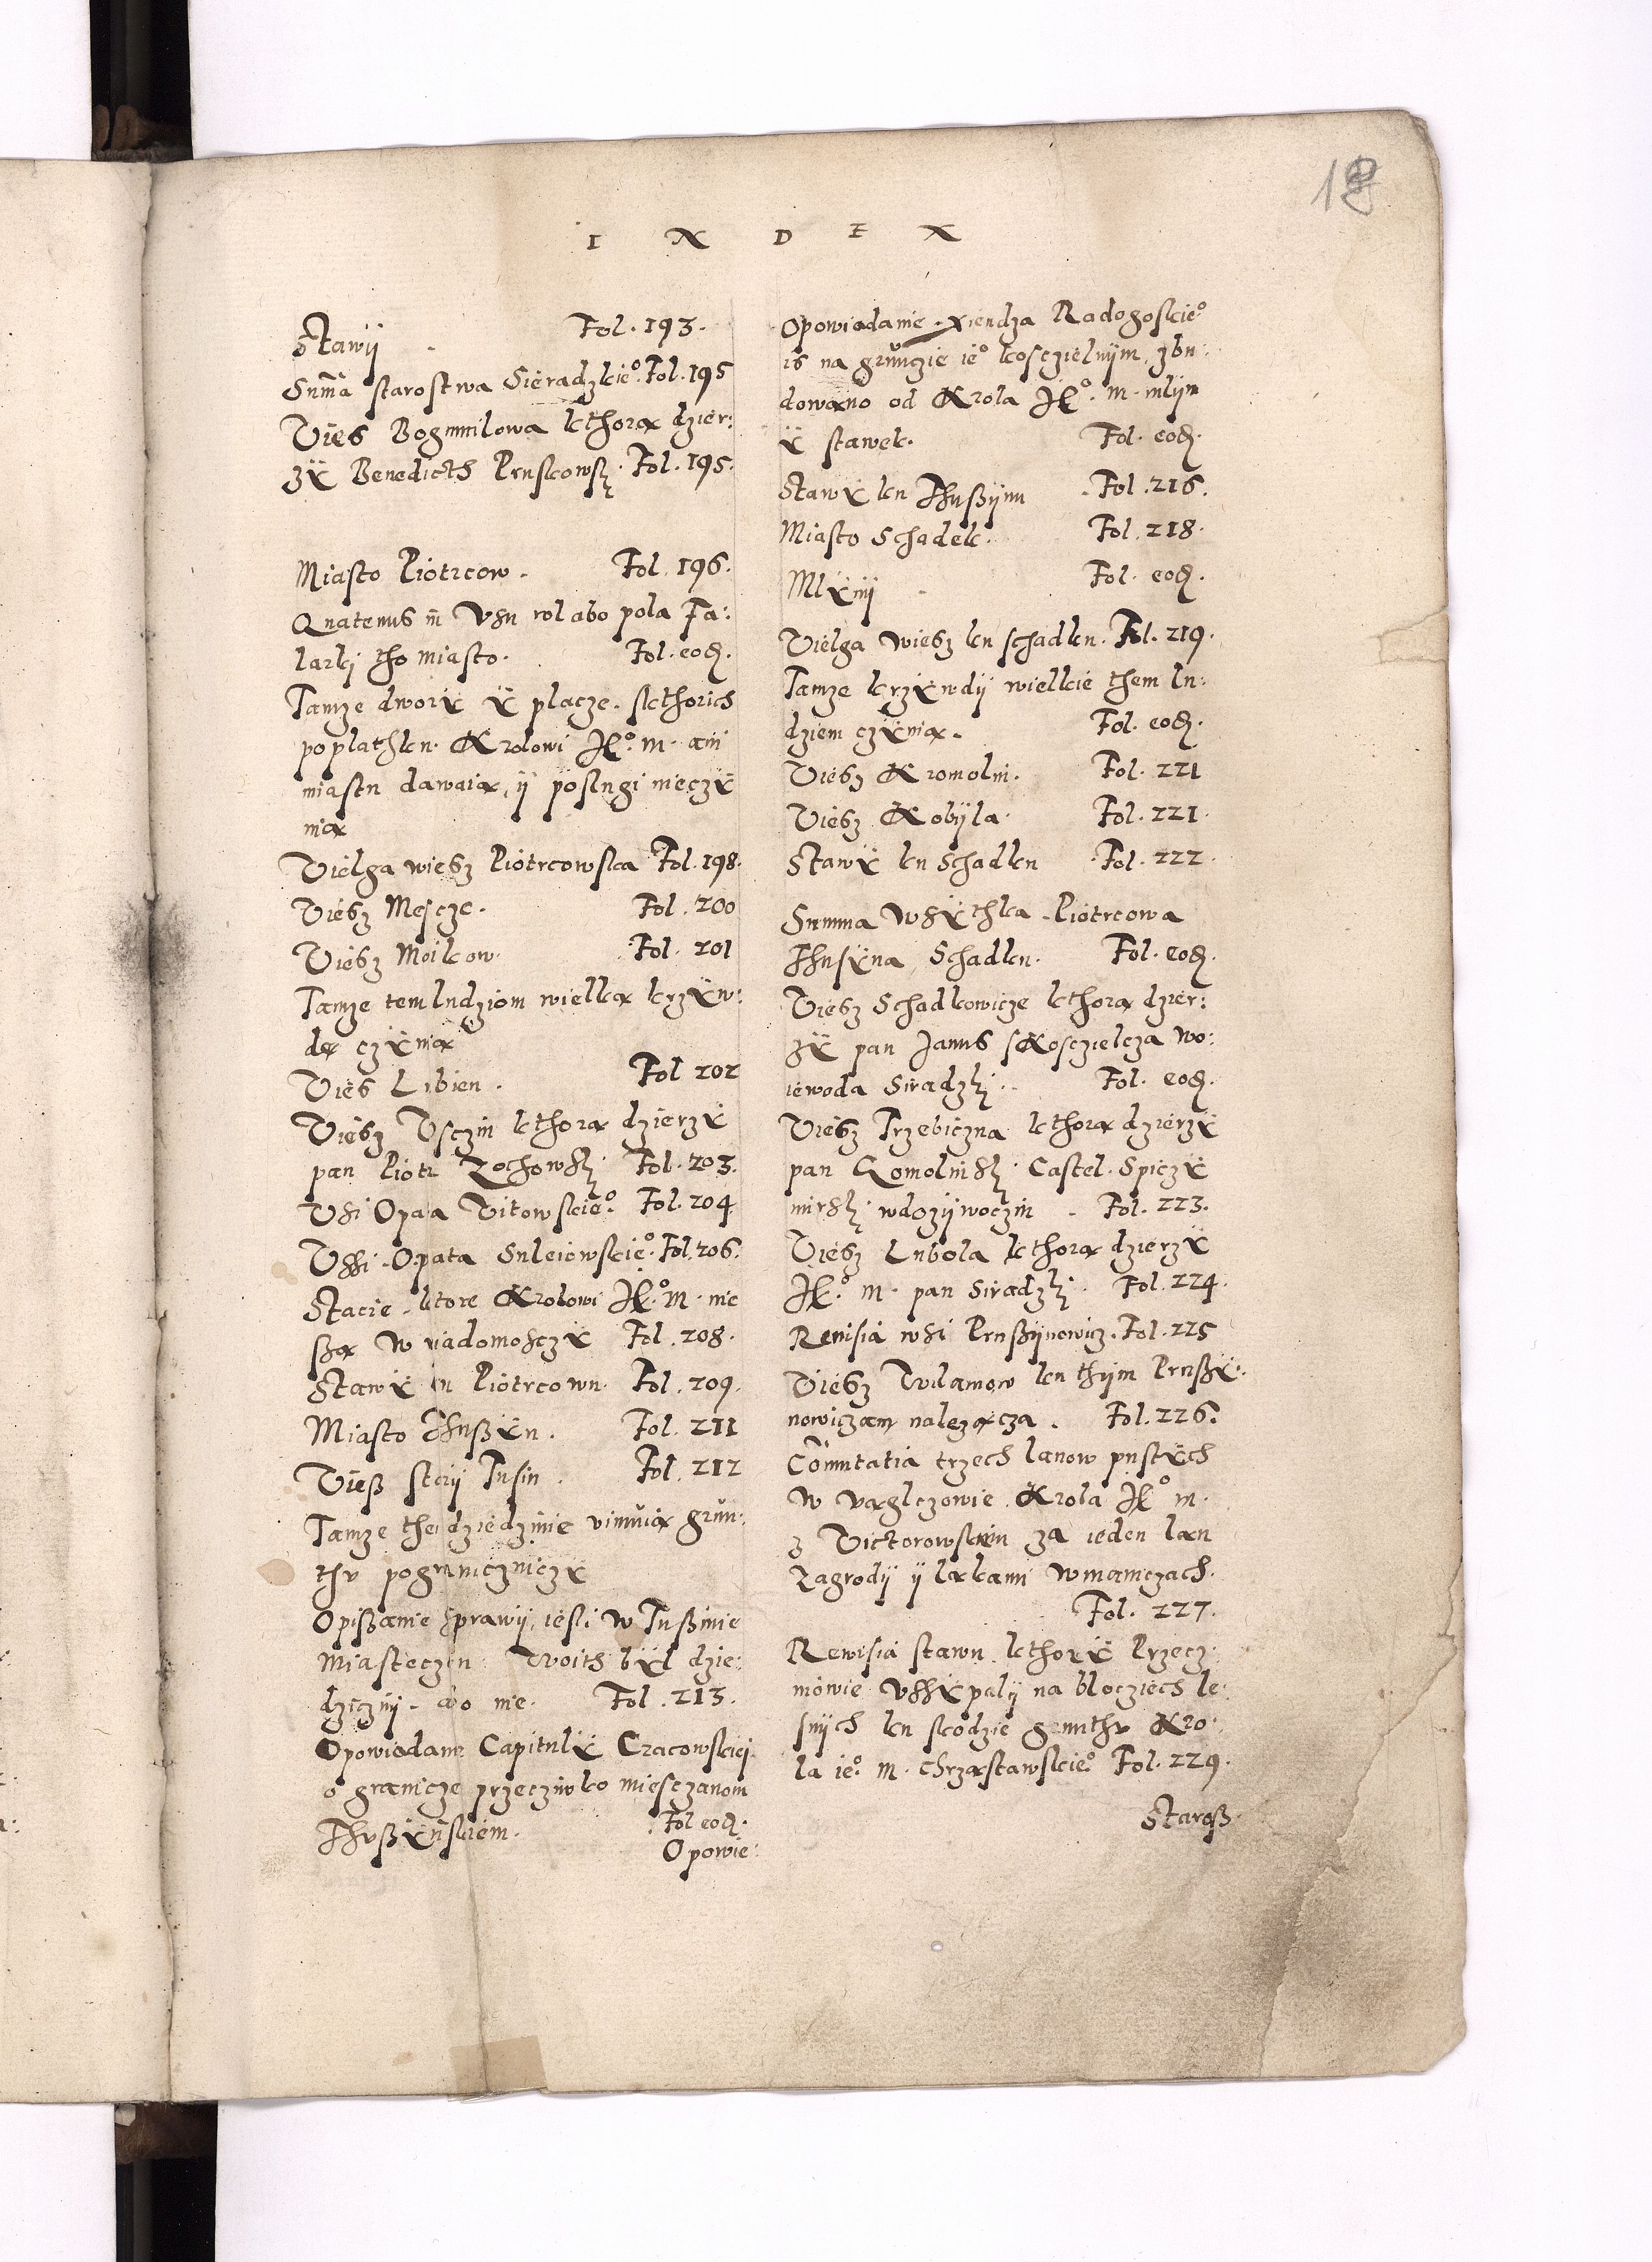 18
INDEX
Stawÿ Fol. 193.
Sum̃a starostwa Sieradzkie°. Fol. 195
Vies Bogumilowa kthora dzier:
zÿ Benedicth Pruskowsky. Fol. 195.
Miasto Piotrcow. Fol. 196.
Quatenus in Vsu rol abo pola Fa:
larki tho miasto. Fol. eod.
Tamze dworÿ ÿ place. skthorich
poplathku Krolowi JK°. m. ani
miastu dawaią, ÿ poslugi nieczÿ
nią
Vielga wiesz Piotrcowska Fol. 198.
Viesz Mescze. Fol. 200
Viesz Moikow. Fol. 201
Tamze tem ludziom wielką krzÿw:
dę czÿnią
Vies Libien. Fol 202
Viesz Vsczin kthorą dzierzÿ
pan Piotr Zochowsky Fol. 203.
Vsi Opata Vitowskie°. Fol. 204
Vssi Opata Suleiowskie°. Fol. 206.
Stacie ktore Krolowi JK°. M. nie
są w viadomosczÿ Fol. 208.
Stawÿ in Piotrcown. Fol. 209.
Miasto Thußÿn. Fol. 211
Vieß starÿ Tusin. Fol. 212
Tamze thei dziedzinie vimuią grun:
thv pograniczniczÿ
Opißanie sprawÿ, iesli w Tußinie
Miasteczku Woith bÿl dzie:
dzicznÿ abo nie. Fol. 213.
Opowiadanie Capitulÿ Cracowskiej
o granicze przeczinko miesczanom
Thvßÿnskiem. Fol eod.
Opowie:
Opowiadanie xiendza Radogoskie°
is na gruncie ie° kosczielnÿm, zbu:
dowano od Krola JK°. m. mlÿn
ÿ stawek. Fol. eod.
Stawÿ ku Thußÿnu Fol. 216.
Miasto Schadek. Fol. 218.
Mlÿnÿ Fol. eod.
Vielga wiesz ku schadku. Fol. 219.
Tamze krzÿwdÿ wielkie them lu:
dziem czÿnią. Fol. eod.
Viesz Kromolin. Fol. 221
Viesz Kobÿla. Fol. 221.
Stawÿ ku Schadku Fol. 222.
Summa wsÿthka Piotrcowa
Thusÿna, Schadku. Fol. eod.
Viesz Schadkowicze kthorą dzier:
zÿ pan Janus s Kosczielcza wo:
iewoda Siradzky. Fol. eod.
Viesz Przebiczna kthorą dzierzÿ
pan Gomolinsky Castel. Spiczÿ
mirsky wdozÿwoczin Fol. 223.
Viesz Lubola kthorą dzierzÿ
JK°. m. pan Siradzky. Fol. 224.
Rewisia wsi Prußÿnowicz. Fol. 225
Viesz Wilamow ku thÿm Prußÿ:
nowiczam należącza. Fol. 226.
Com̃utatia trzech lanow pustÿch
w vąglczowie Krola JK° m.
z Victorowskim za ieden lan
Zagrodÿ ÿ lakami w mamczach.
Fol. 227.
Rewisia stawu kthorÿ Przecz
mowie vssÿpalÿ na bloczieck le:
snÿch ku skodzie grunthv Kro:
la ie°. m. chrząstawskie° Fol. 229.
Staroß.